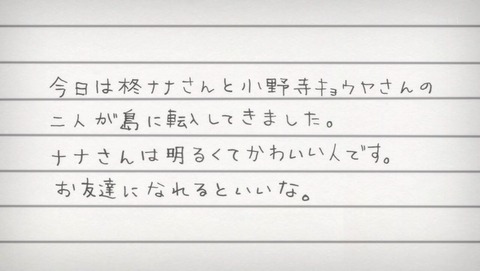 今日は柊ナナさんと小野寺キョウヤさんの
二人が島に転入してきました。
ナナさんは明るくてかわいい人です。
お友達になれるといいな。